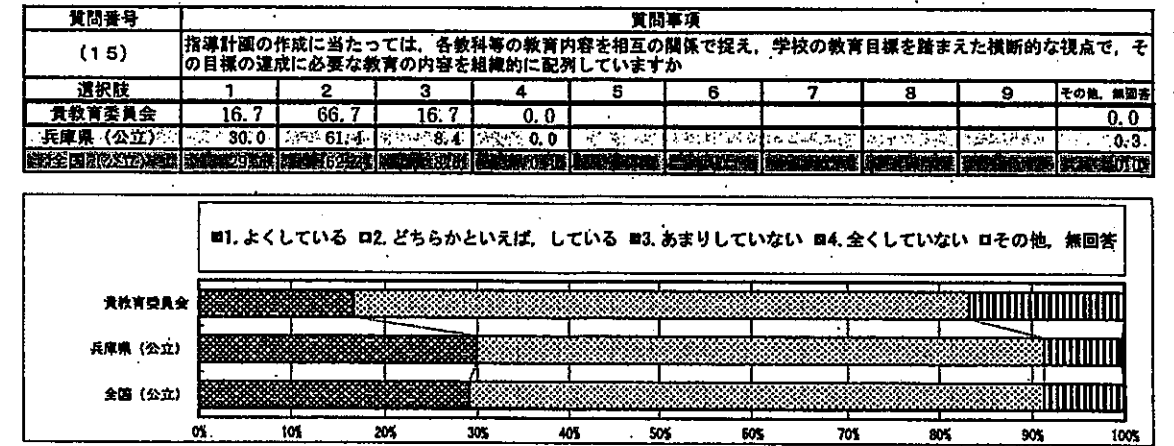 質問番号 質問事項
(15) 指導計画の作成に当たっては，各教科等の教育内容を相互の関係で捉え，学校の教育目標を踏まえた横断的な視点で，そ
の目標の達成に必要な教育の内容を組織的に配列していますか
選択肢 1 2 3 4 5 6 7 8 9 その他，無回答
貴教育委員会 16.7 66.7 16.7 0.0 0.0
兵庫県（公立） 30.0 61.4 8.4 0.0 0.3
全国（公立）
1.よくしている 2.どちらかといえば，している 3.あまりしていない 4.全くしていない その他，無回答
貴教育委員会
兵庫県（公立）
全国（公立）
0% 10% 20% 30% 40% 50% 60% 70% 80% 90% 100%